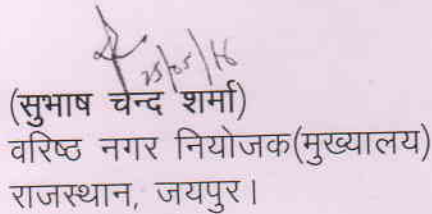 25/05/16
(सुभाष चन्द शर्मा)
वरिष्ठ नगर नियोजक(मुख्यालय)
राजस्थान, जयपुर।